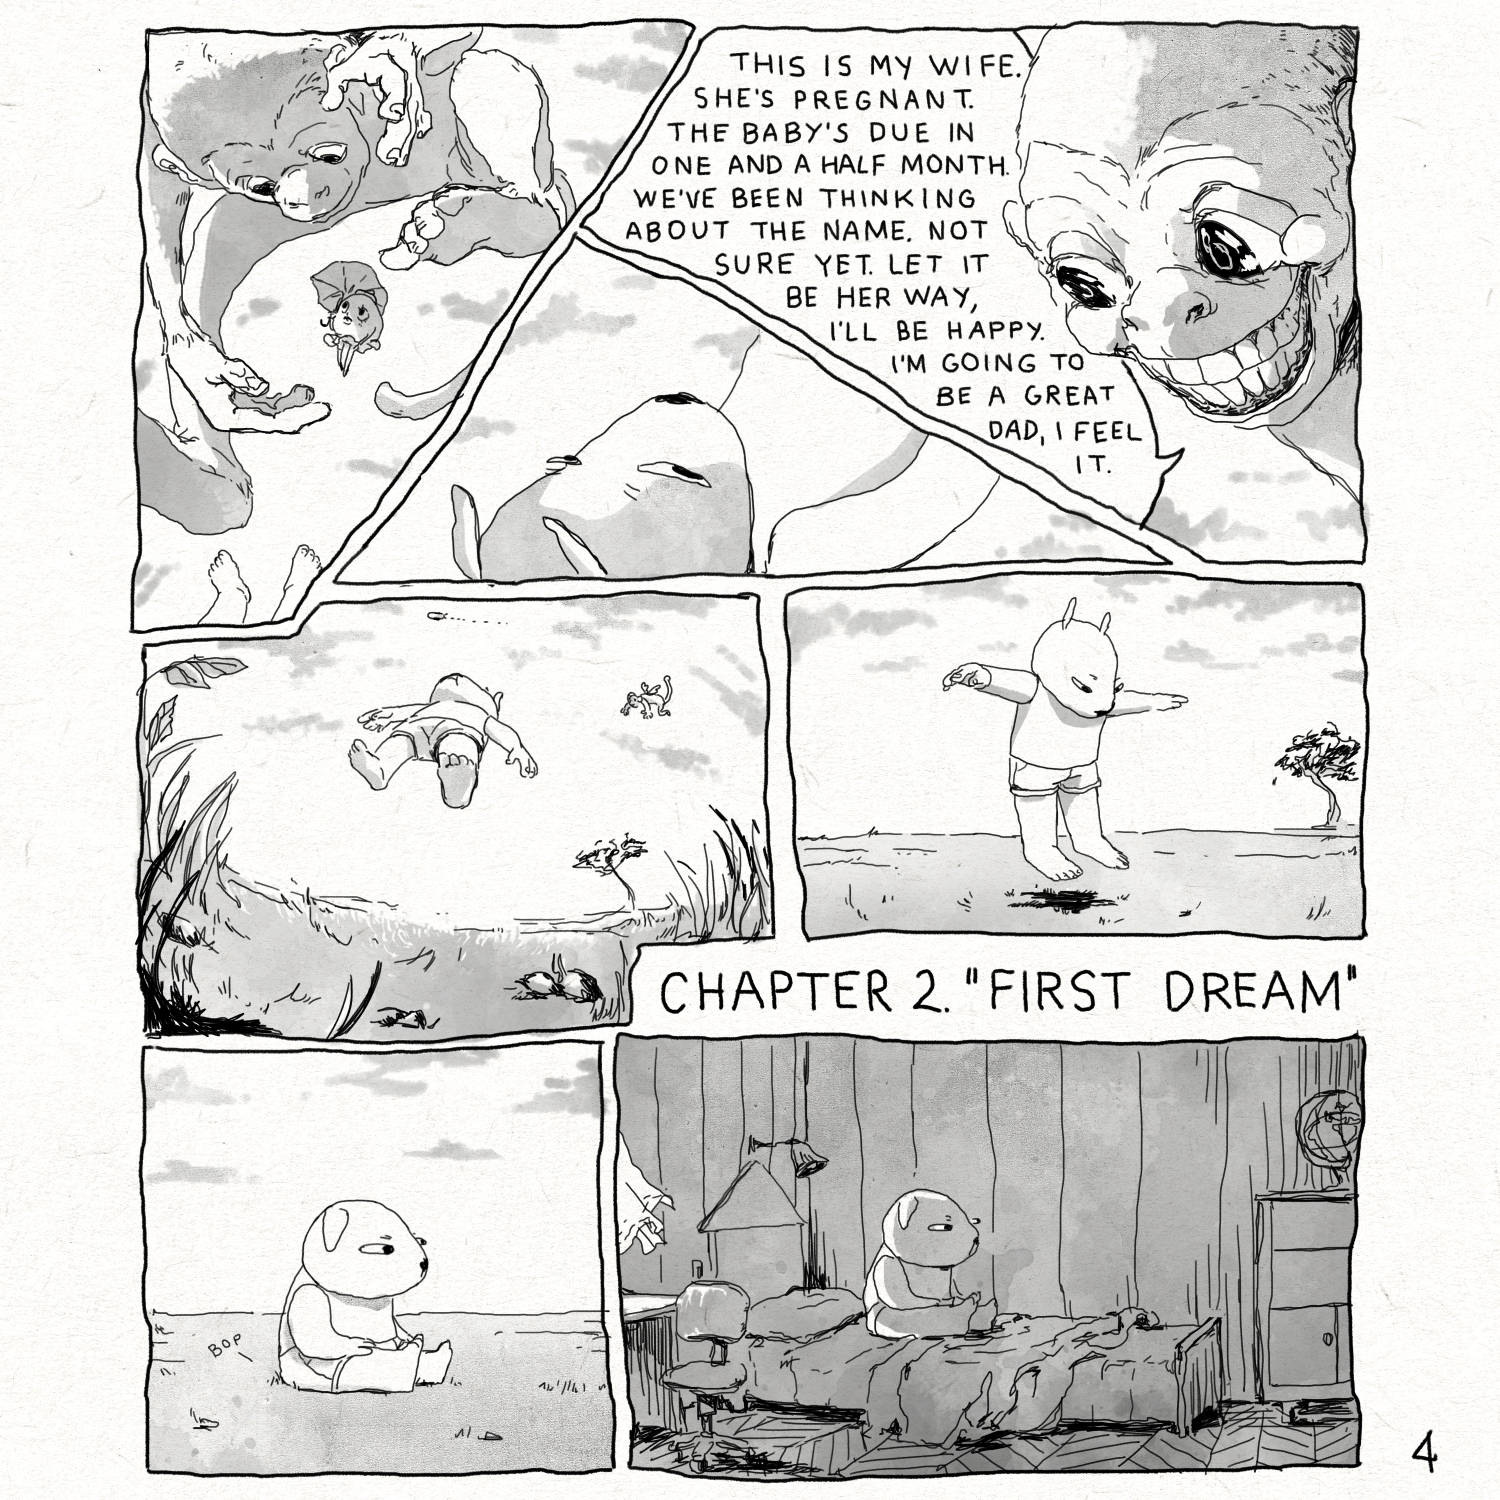 THIS IS MY WIFE.
SHE'S PREGNANT.
THE BABY'S DUE IN
ONE AND A HALF MONTH.
WE'VE BEEN THINKING
ABOUT THE NAME. NOT
SURE YET. LET IT
BE HER WAY,
I'LL BE HAPPY.
I'M GOING TO
BE A GREAT
DAD, I FEEL
IT.
CHAPTER 2. "FIRST DREAM"
BOP
4